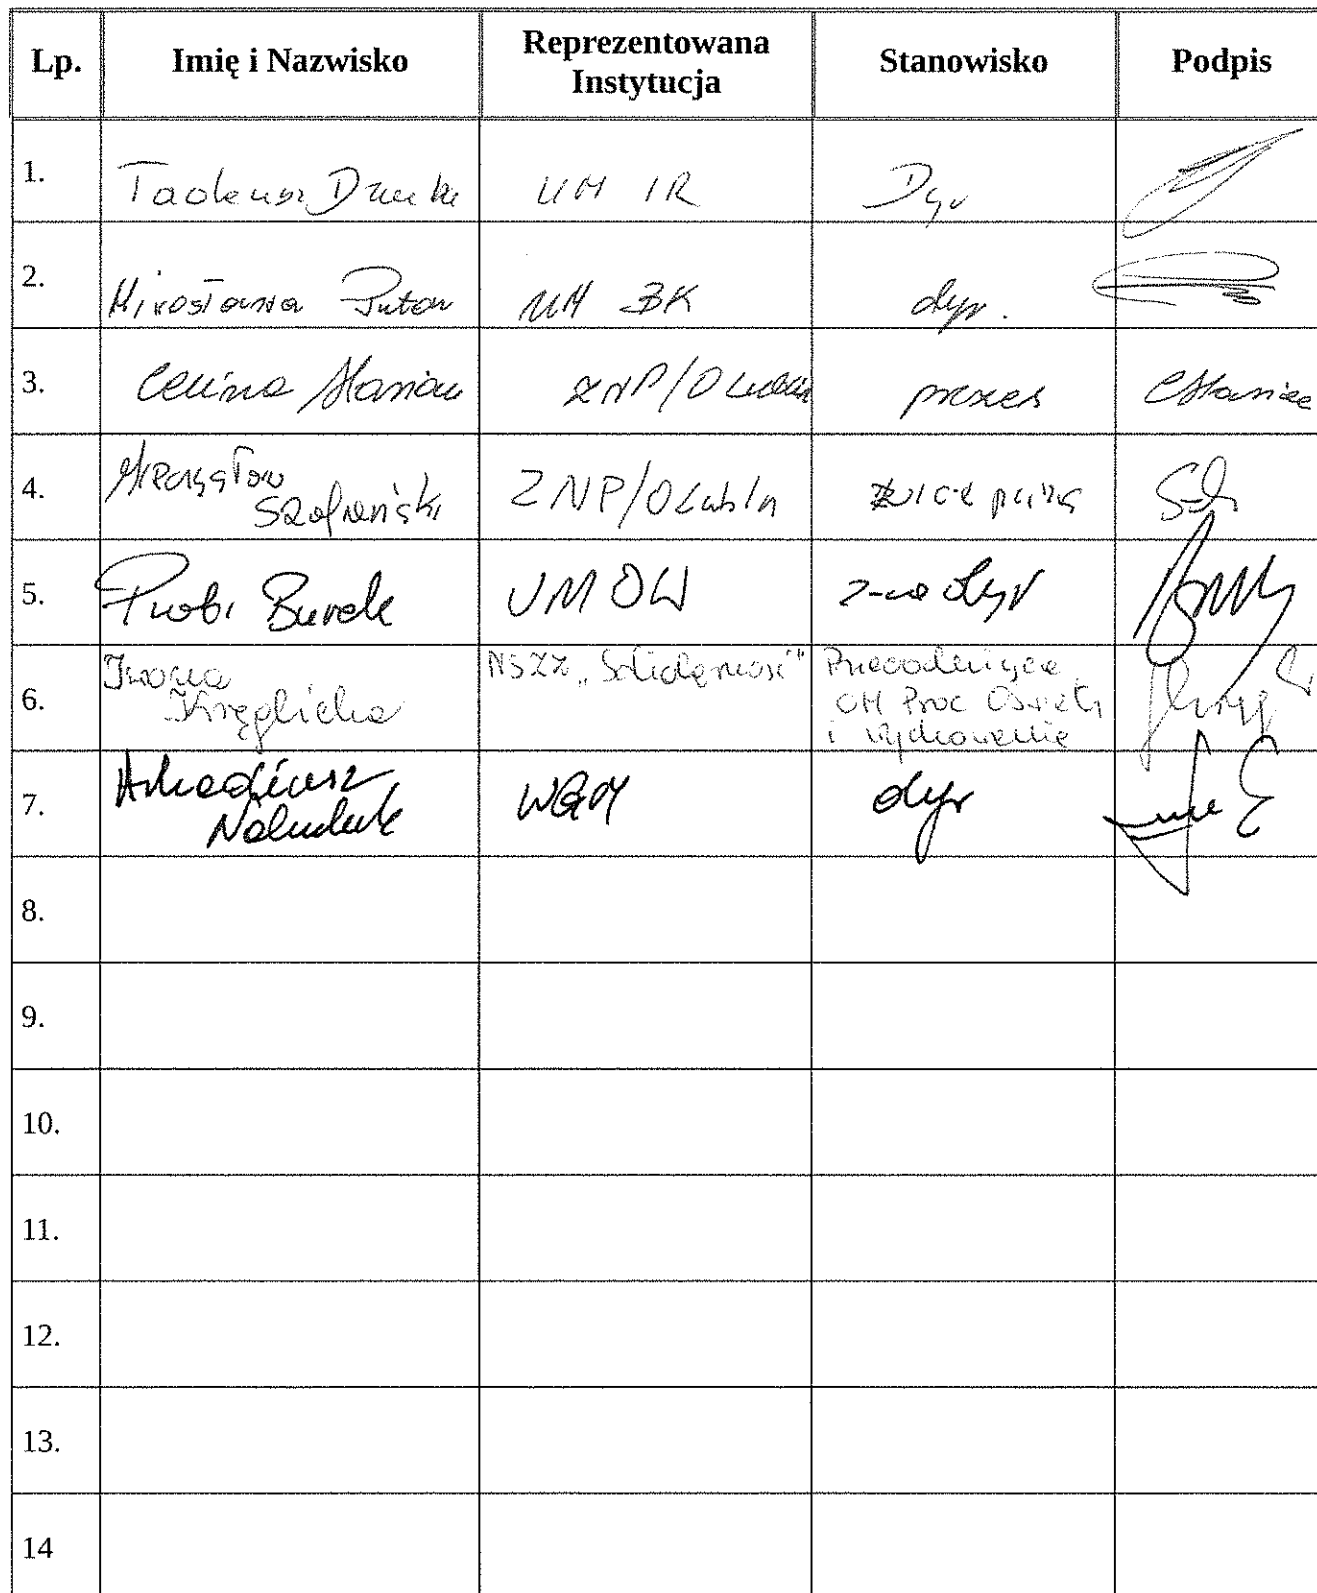 Lp. Imię i Nazwisko Reprezentowana Instytucja Stanowisko Podpis
1. Tadeusz UM IR Dyr
2. Mirosława Puton UM BK dyr.
3. Celina Stasiak ZNP/O Lublin prezes
4. Mieczysław Szafrański ZNP/O Lublin wiceprezes
5. Piotr Burek UM OW z-ca Dyr
6. Iwona Kręglicka NSZZ „Solidarność" Przewodnicząca
OM Prac Oświaty
i Wychowania
7. Arkadiusz Nahuluk WGM dyr
8.
9.
10.
11.
12.
13.
14